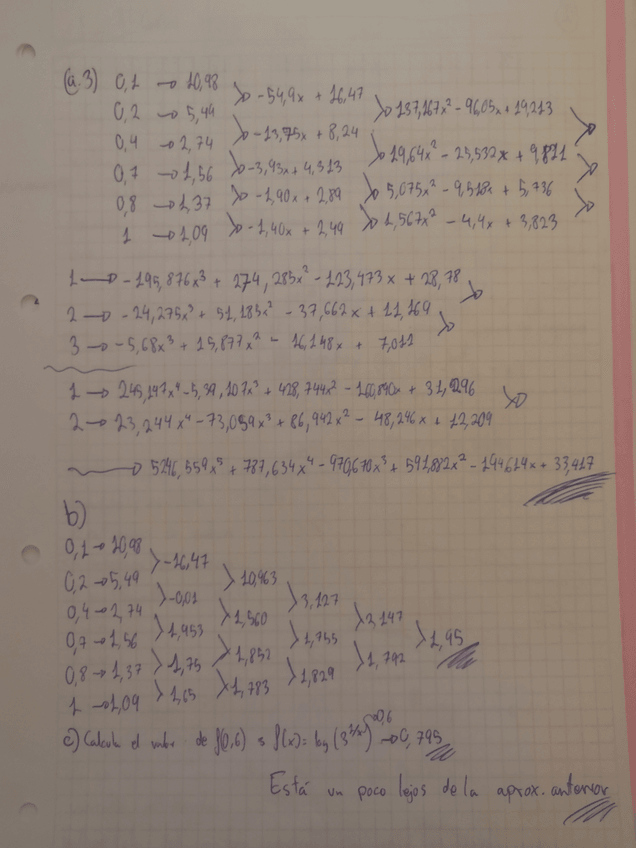 (a.3) 0,1 → 10,98
0,2 → 5,49
0,4 → 2,74
0,7 → 1,56
0,8 → 1,37
1 → 1,09
-54,9x + 16,47
-13,75x + 8,24
-3,93x + 4,313
-1,90x + 2,89
-1,40x + 2,49
137,167x² - 96,05x + 19,213
19,64x² - 25,532x + 9,811
5,075x² - 9,518x + 5,736
1,567x² - 4,4x + 3,823
1 → -195,876x³ + 274,285x² - 123,473x + 28,78
2 → -24,275x³ + 51,185x² - 37,662x + 11,169
3 → -5,68x³ + 15,877x² - 16,148x + 7,011
1 → 245,197x⁴ - 5,39,107x³ + 428,744x² - 160,890x + 31,296
2 → 23,244x⁴ - 73,059x³ + 86,942x² - 48,246x + 12,209
→ 5246,559x⁵ + 787,634x⁴ - 970,670x³ + 591,882x² - 194614x + 33,417
b)
0,1 → 10,98
0,2 → 5,49
0,4 → 2,74
0,7 → 1,56
0,8 → 1,37
1 → 1,09
-16,47
-0,01
1,953
-1,75
1,65
10,963
1,560
1,852
1,783
3,127
1,755
1,829
2,147
1,792
1,95
c) Calcula el valor de f(0,6) s f(x) = log(3^1/x) 0,6 → 0,795
Está un poco lejos de la aprox. anterior